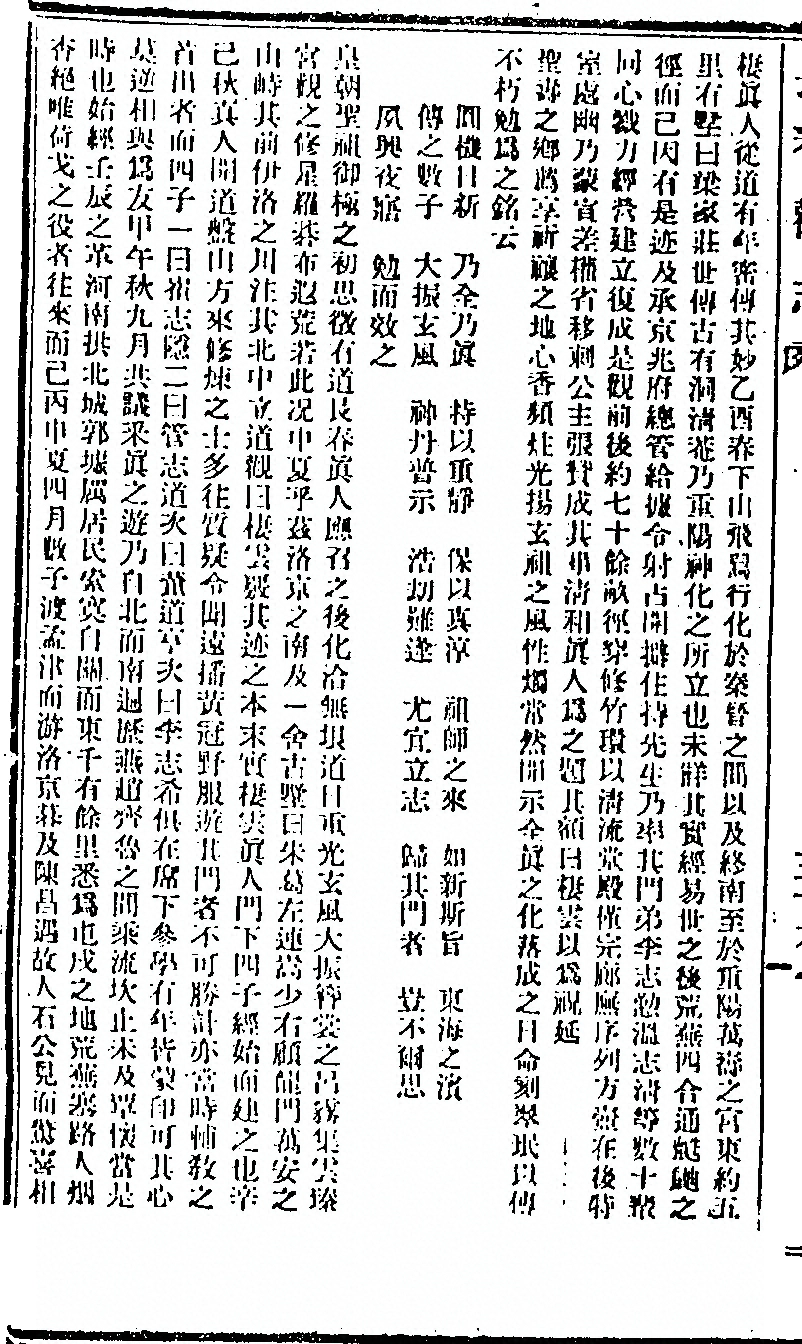 棲眞人從道有年密傳其妙乙酉春下山飛舄行化於秦晉之間以及終南至於重陽萬壽之宮東約五
里有墅曰梁家莊世傳古有洞淸菴乃重陽神化之所立也未詳其實經易世之後荒蕪四合通樵牧之
徑而已因有是迹及承京兆府總管給據令射占開搆住持先生乃率其門弟李志勉溫志淸等數十衆
同心戮力經營建立復成是觀前後約七十餘畝徑穿修竹環以淸流堂殿僅完廊廡序列方壺在後特
室處幽乃蒙宣差權省移剌公主張贊成其事淸和眞人爲之題其額曰棲雲以爲祝延
聖壽之鄕薦享祈禳之地心香頻炷光揚玄祖之風性燭常然開示全眞之化落成之日命刻翠珉以傳
不朽勉爲之銘云
圓機日新 乃全乃眞 持以重靜 保以真淳 祖師之來 如新斯旨 東海之濱
傳之數子 大振玄風 神丹普示 浩劫難逢 尤宜立志 歸其門者 豈不爾思
夙興夜寐 勉而效之
皇朝聖祖御極之初思徵有道長春眞人應召之後化洽無垠道日重光玄風大振褘裳之侶霧集雲臻
宮觀之修星羅棊布遐荒若此况中夏乎茲洛京之南及一舍古墅曰朱葛左連嵩少右顧龍門萬安之
山峙其前伊洛之川注其北中立道觀曰棲雲覈其迹之本末實棲雲眞人門下四子經始而建之也辛
巳秋真人開道盤山方來修煉之士多往質疑令聞遠播黃冠野服遊其門者不可勝計亦當時輔敎之
首出者而四子一曰崔志隱二曰管志道次曰董道亨次曰李志希俱在席下參學有年皆蒙印可其心
莫逆相與爲友甲午秋九月共議采眞之遊乃自北而南遍歷燕趙齊魯之間乘流坎止未及覃懷當是
時也始經壬辰之革河南拱北城郭墟厲居民索寞自關而東千有餘里悉爲屯戍之地荒蕪塞路人烟
杳絕唯荷戈之役者往來而已丙申夏四月數子渡孟津而游洛京暮及陳昌遇故人石公見而驚喜相